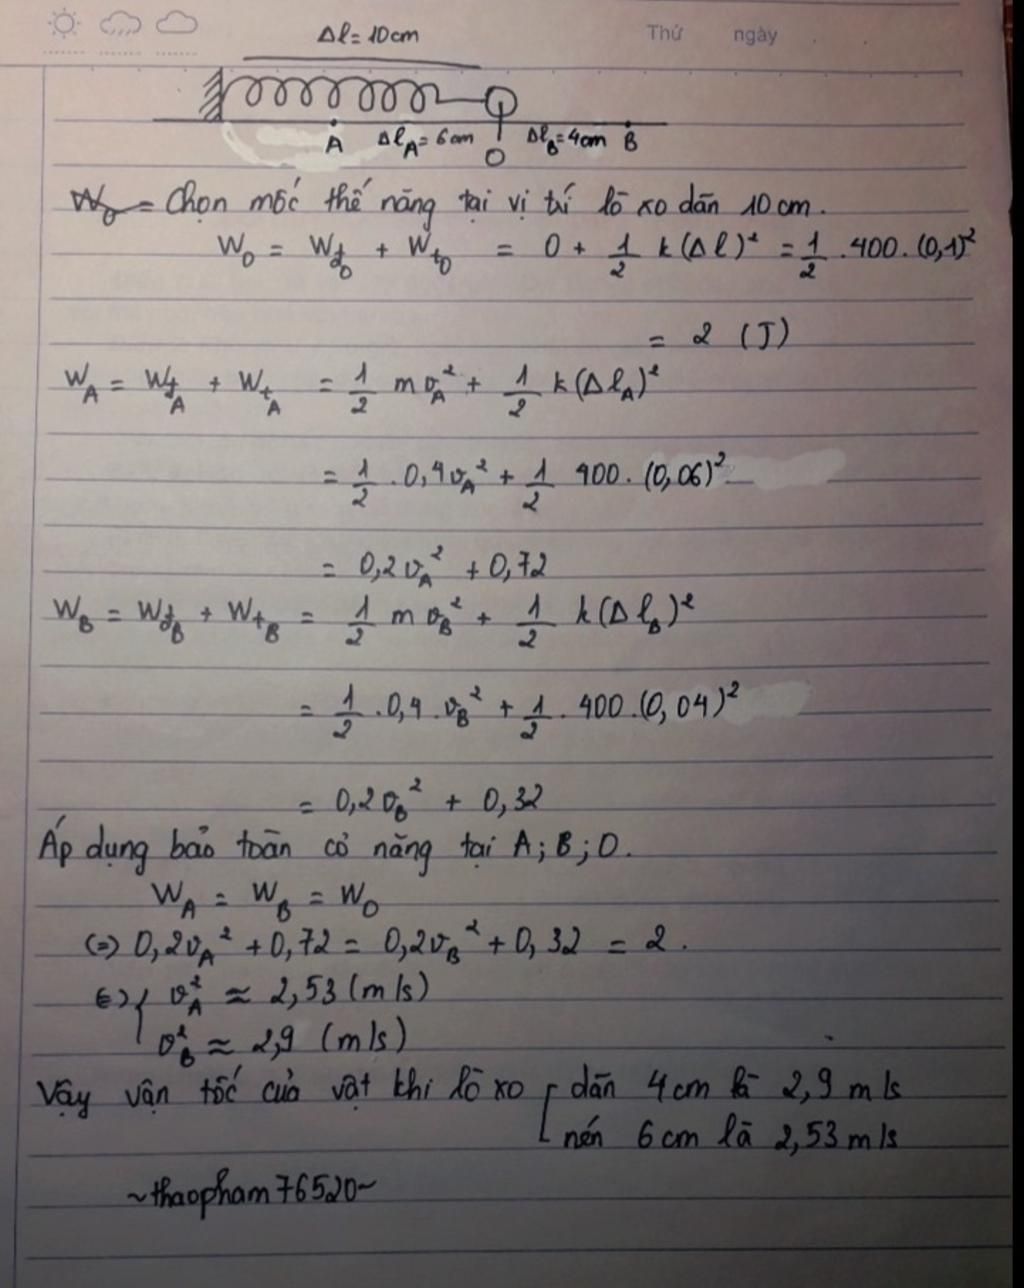 Thứ ngày
Δl = 10cm
A Δl_A = 6cm O Δl_B = 4cm B
W₀ = Chọn mốc thế năng tại vị trí lò xo dãn 10 cm.
W_O = W_đO + W_tO = 0 + 1/2 k(Δl)² = 1/2 . 400 . (0,1)²
= 2 (J)
W_A = W_đA + W_tA = 1/2 m v_A² + 1/2 k(Δl_A)²
= 1/2 . 0,4 v_A² + 1/2 400 . (0,06)²
= 0,2 v_A² + 0,72
W_B = W_đB + W_tB = 1/2 m v_B² + 1/2 k(Δl_B)²
= 1/2 . 0,4 . v_B² + 1/2 . 400 . (0,04)²
= 0,2 v_B² + 0,32
Áp dụng bảo toàn cơ năng tại A; B; O.
W_A = W_B = W_O
(=) 0,2 v_A² + 0,72 = 0,2 v_B² + 0,32 = 2 .
(=) { v_A² ≈ 2,53 (m/s)
v_B² ≈ 2,9 (m/s)
Vậy vận tốc của vật khi lò xo [ dãn 4cm là 2,9 m/s
nén 6cm là 2,53 m/s
~thaopham76520~